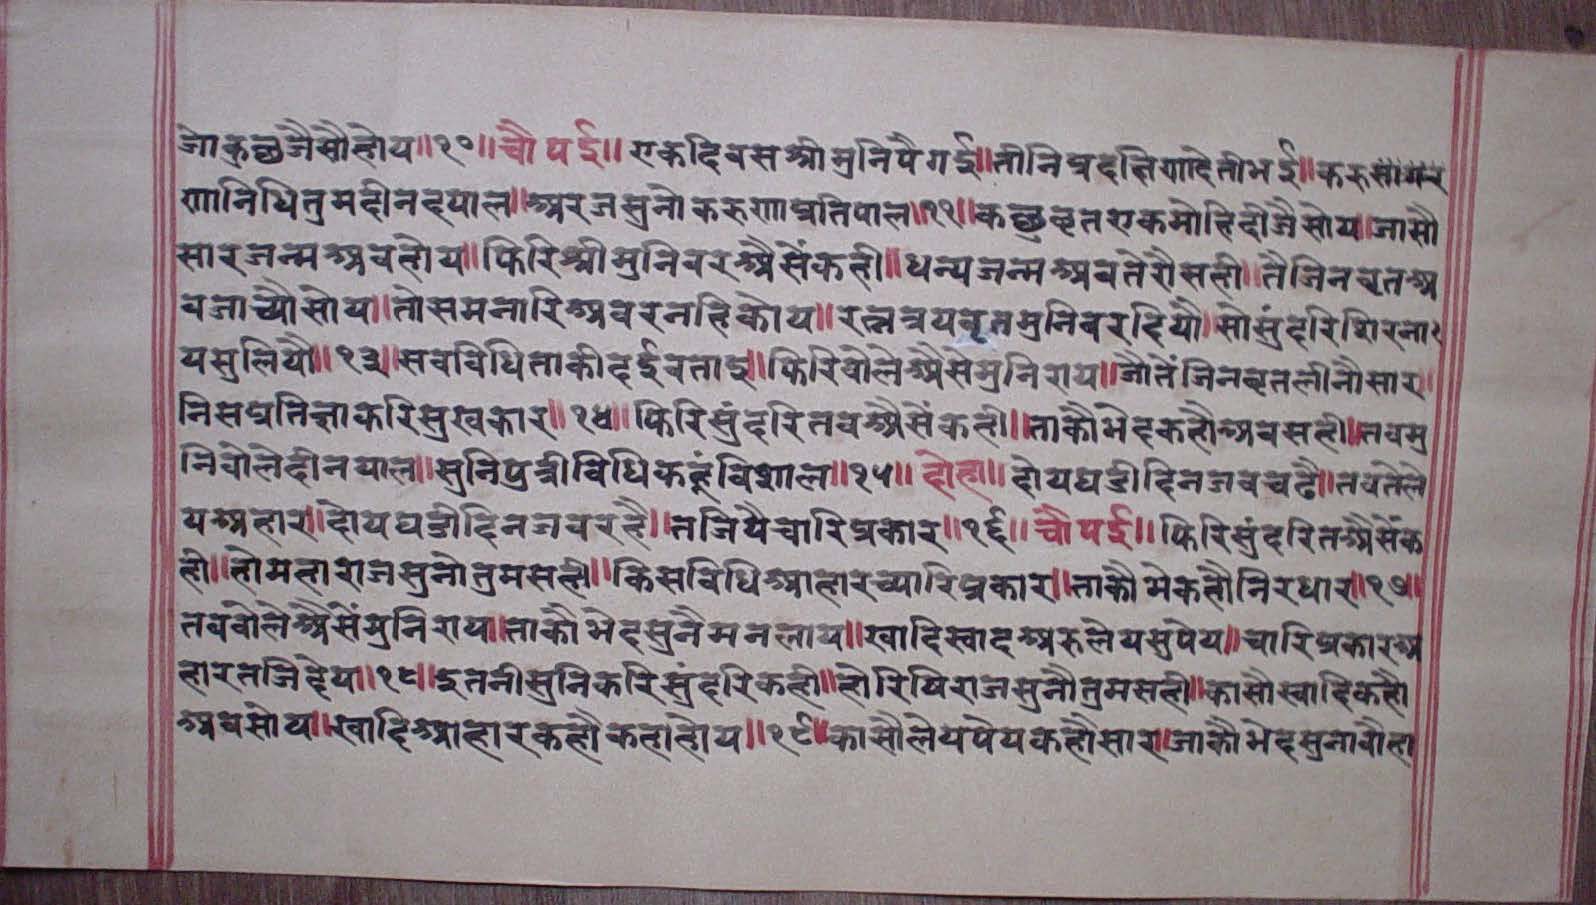 जोकछुजैसौहोय॥१०॥चौपई॥एकदिवसश्रीमुनिपैगई॥तीनिप्रदक्षिणादेतीभई॥करु
णानिधितुमदीनदयाल॥अरजसुनोकरुणाप्रतिपाल॥११॥कछुवृतएकमोहिदीजैसोय॥जासौ
सारजन्मअबहोय॥फिरिश्रीमुनिवरअैसेंकही॥धन्यजन्मअबतेरौसही॥तैजिनवृतअ
बजाच्यौसोय॥तोसमनारिअवरनहिकोय॥रत्नत्रयवृतमुनिवरदियौ॥सोसुंदरिशिरना
यसुलियौ॥१३॥सवविधिताकीदईवताइ॥फिरिवोलेअैसेमुनिराय॥जौतेंजिनवृतलीनौसार॥
निसप्रतिज्ञाकरिसुखकार॥१४॥फिरिसुंदरितवअैसेंकही॥ताकौभेदकहौअवसही॥तवमु
निवोलेदीनयाल॥सुनिपुत्रीविधिकहूंविशाल॥१५॥दोहा॥दोयघडीदिनजवचढै॥तवतेले
यअहार॥दोयघडीदिनजवरहै॥तजियैचारिप्रकार॥१६॥चौपई॥फिरिसुंदरितअैसेंक
ही॥होमहाराजसुनोतुमसही॥किसविधिआहारच्यारिप्रकार॥ताकौभेकहौनिरधार॥१७॥
तववोलेअैसेंमुनिराय॥ताकौभेदसुनैमनलाय॥खादिस्वादअरुलेयसुपेय॥चारिप्रकारअ
हारतजिदेय॥१८॥इतनीसुनिकरिसुंदरिकही॥होरिषिराजसुनौतुमसही॥कासौस्वादिकहौ
अवसोय॥खादिआहारकहौकहाहोय॥१९॥कासौलेयपेयकहौसार॥जाकौभेदसुनावौहा